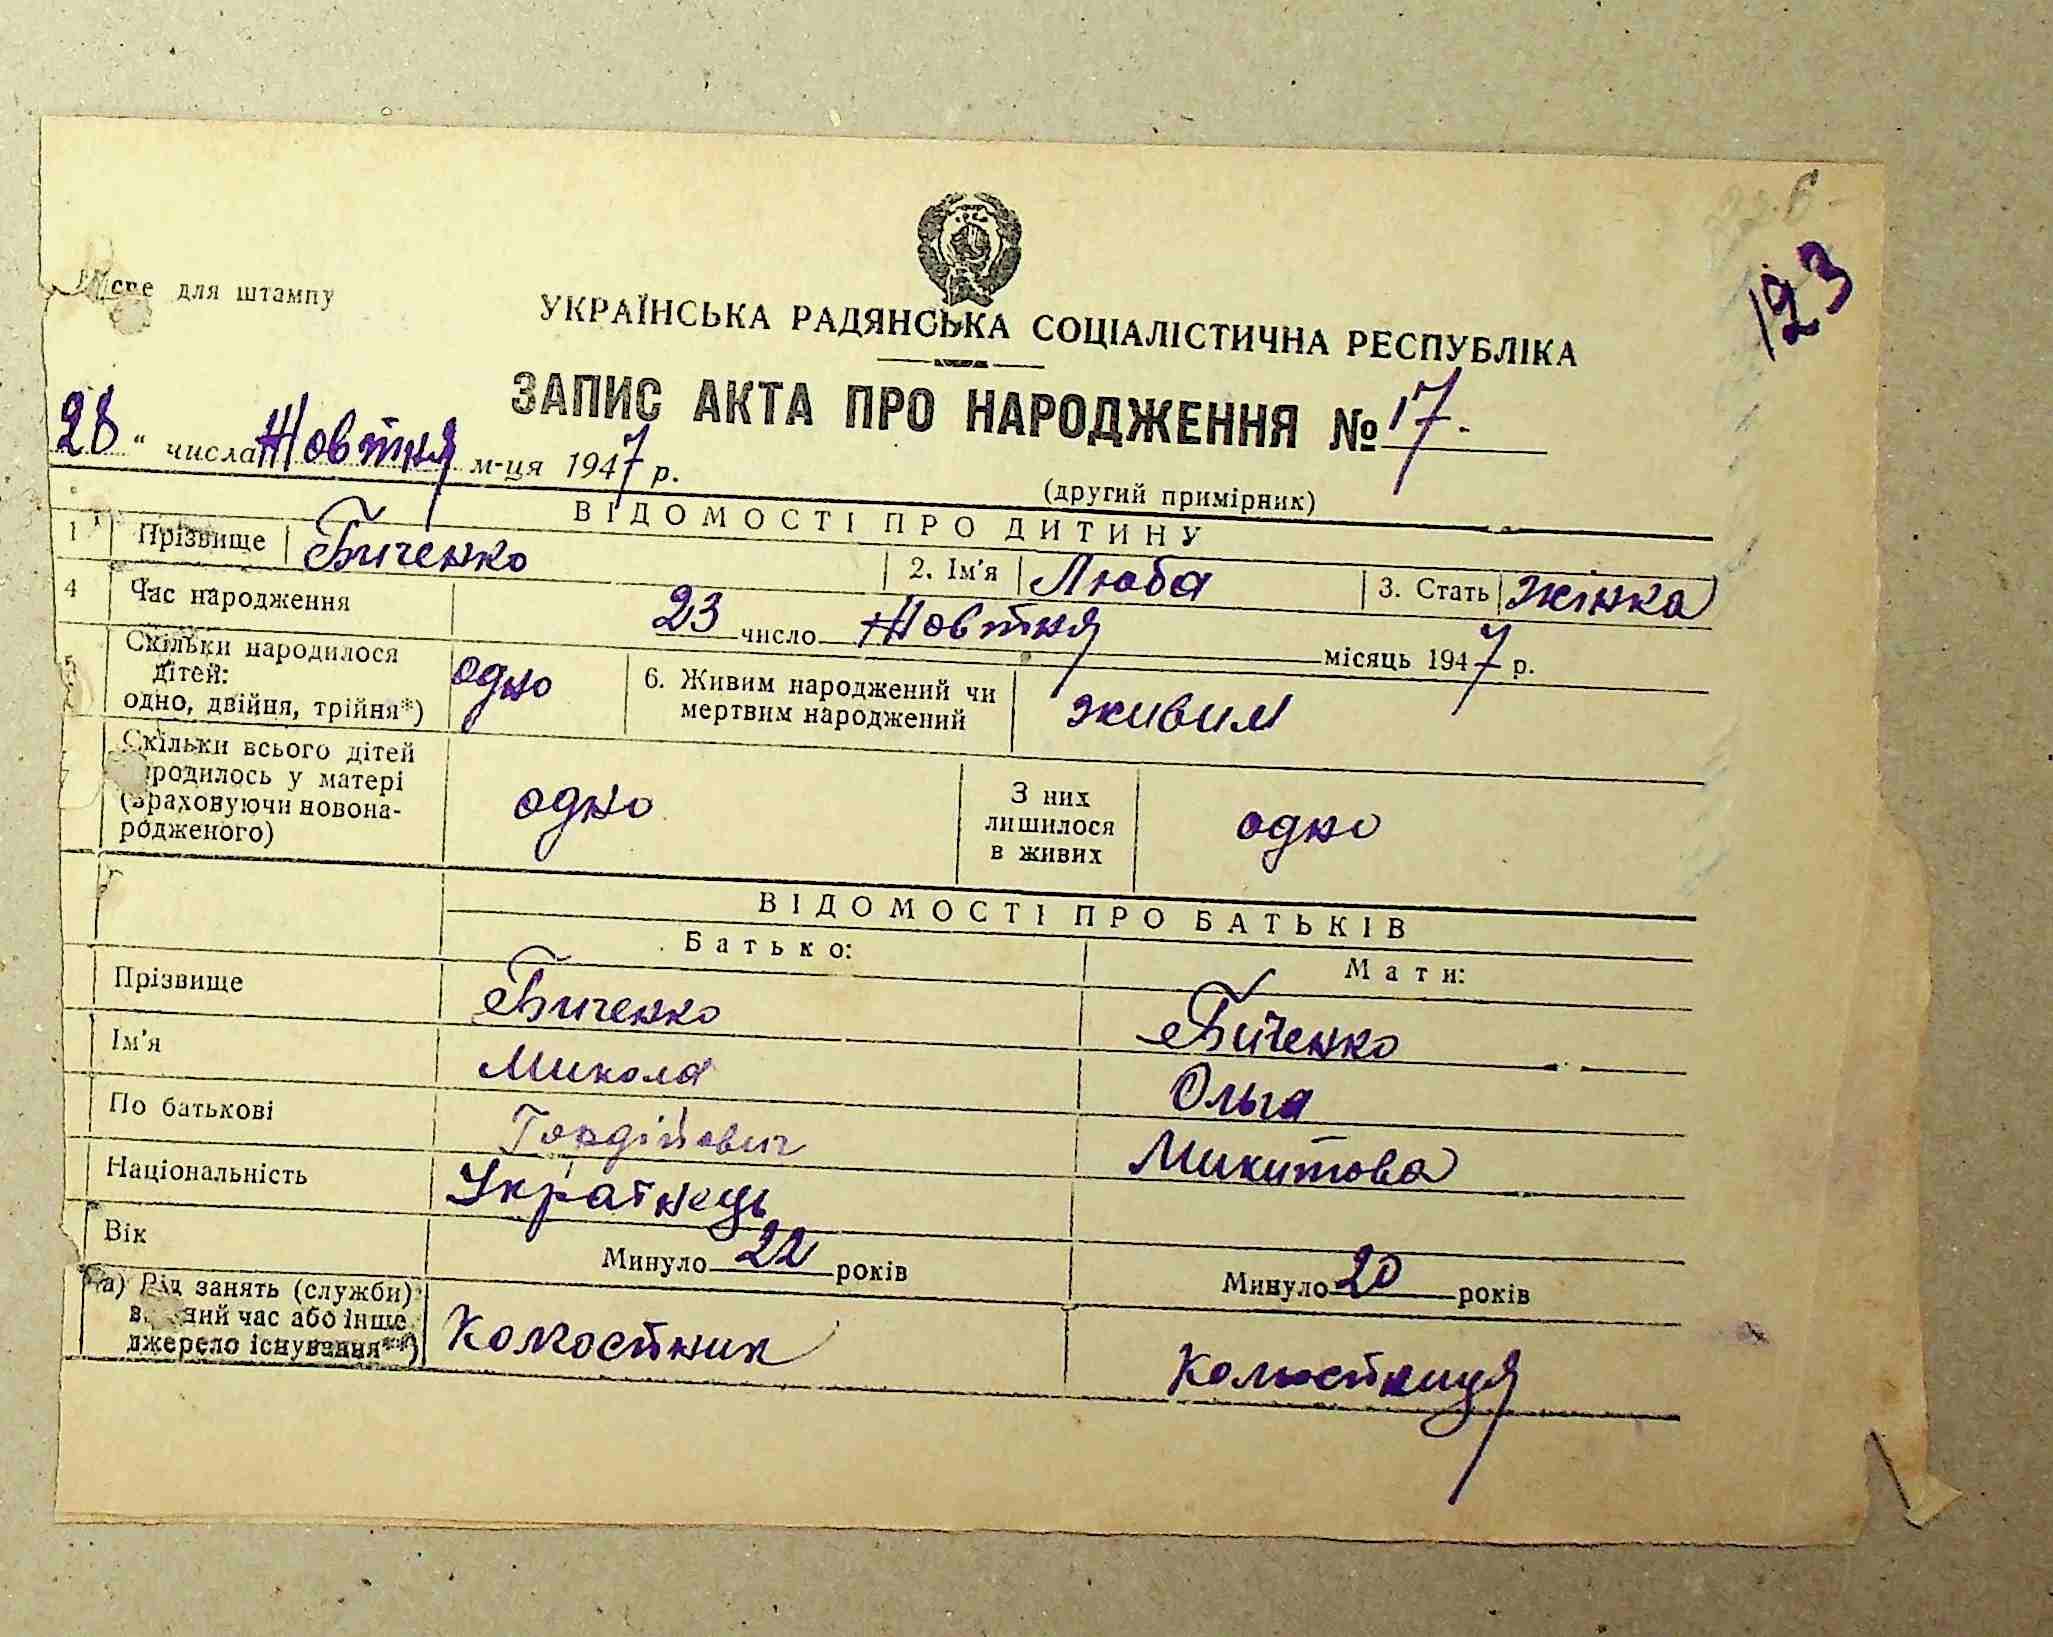 123
для штампу
УКРАЇНСЬКА РАДЯНСЬКА СОЦІАЛІСТИЧНА РЕСПУБЛІКА
ЗАПИС АКТА ПРО НАРОДЖЕННЯ № 17.
28 " числа Жовтня м-ця 1947 р.
(другий примірник)
ВІДОМОСТІ ПРО ДИТИНУ
1 Прізвище Биченко 2. Ім'я Люба 3. Стать жінка
4 Час народження 23 число Жовтня місяць 1947 р.
5 Скільки народилося
дітей:
одно, двійня, трійня*) одно 6. Живим народжений чи
мертвим народжений живим
7 Скільки всього дітей
народилось у матері
(враховуючи новона-
родженого) одно З них
лишилося
в живих одно
ВІДОМОСТІ ПРО БАТЬКІВ
Батько: Мати:
Прізвище Биченко Биченко
Ім'я Микола Ольга
По батькові Гордійович Микитова
Національність Українець
Вік Минуло 22 років Минуло 20 років
а) Рід занять (служби)
в даний час або інше
джерело існування**) Колгостник Колгостниця